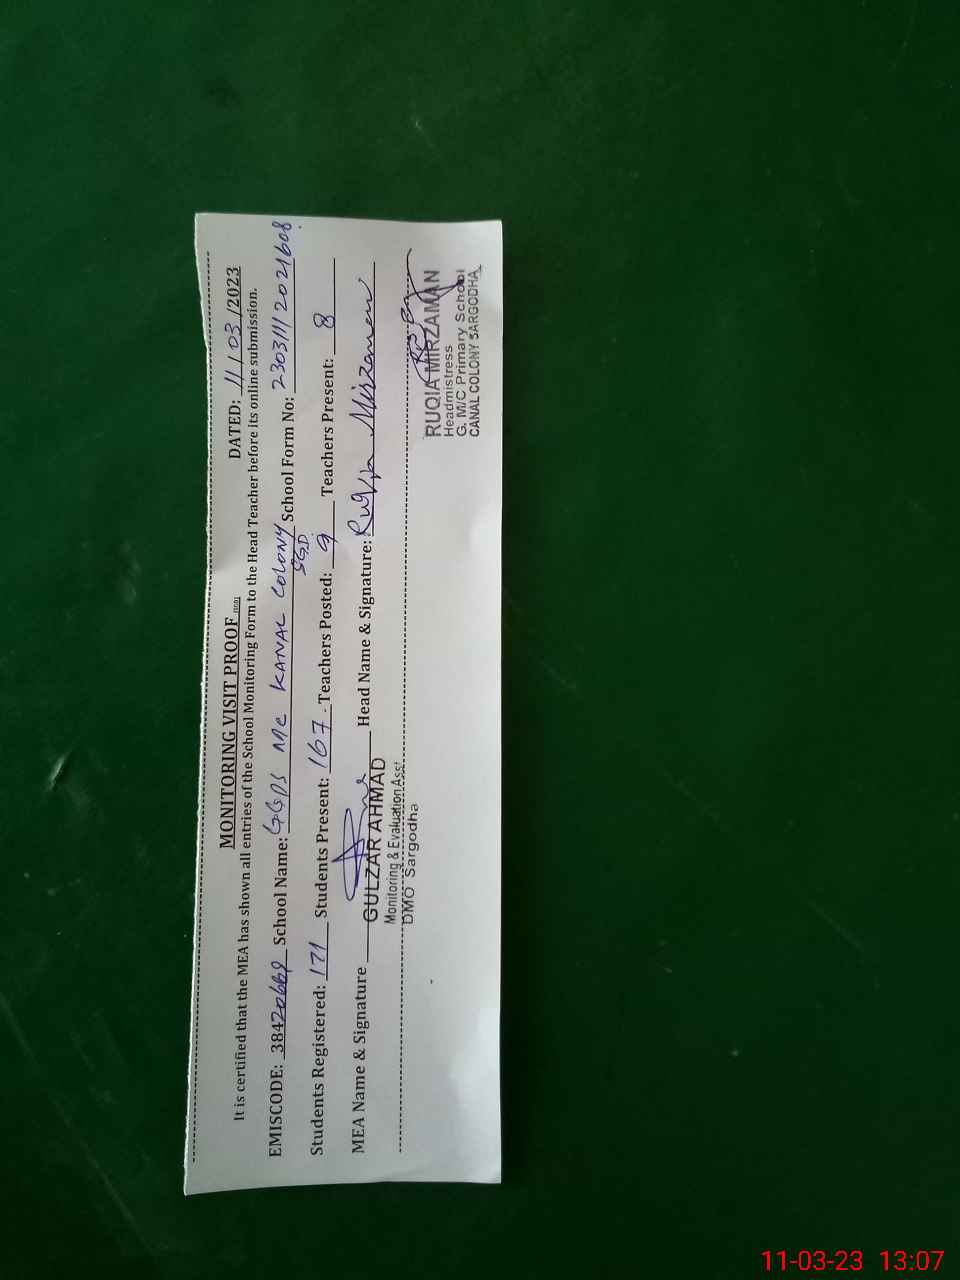 MONITORING VISIT PROOF
DATED: 11/03/2023
It is certified that the MEA has shown all entries of the School Monitoring Form to the Head Teacher before its online submission.
EMISCODE: 38420669 School Name: GGPS MC KANAL COLONY SGD. School Form No: 23031112021608
Students Registered: 171 Students Present: 167 Teachers Posted: 9 Teachers Present: 8
MEA Name & Signature Head Name & Signature: Ruqia Mirzaman
GULZAR AHMAD
Monitoring & Evaluation Asst:
DMO Sargodha
RUQIA MIRZAMAN
Headmistress
G. M/C Primary School
CANAL COLONY SARGODHA
11-03-23 13:07